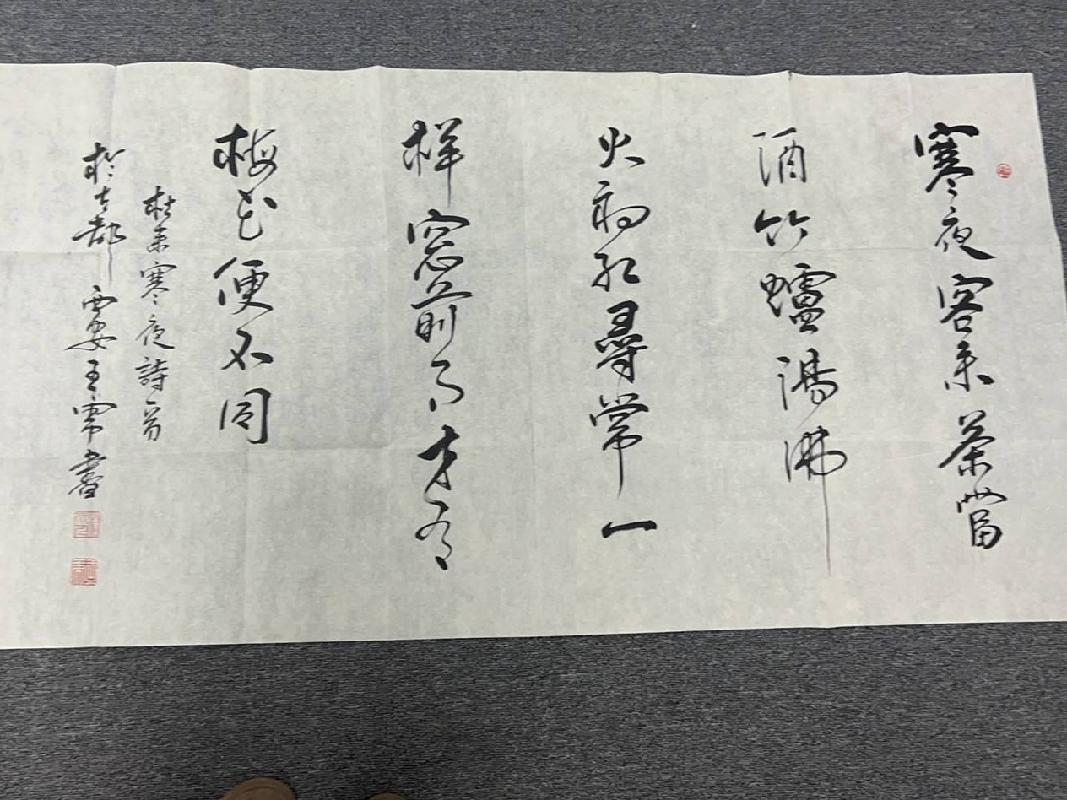 寒夜客来茶當
酒竹爐湯沸
火初红尋常一
样窓前月才有
梅花便不同
杜耒寒夜詩一首
於古都西安王書